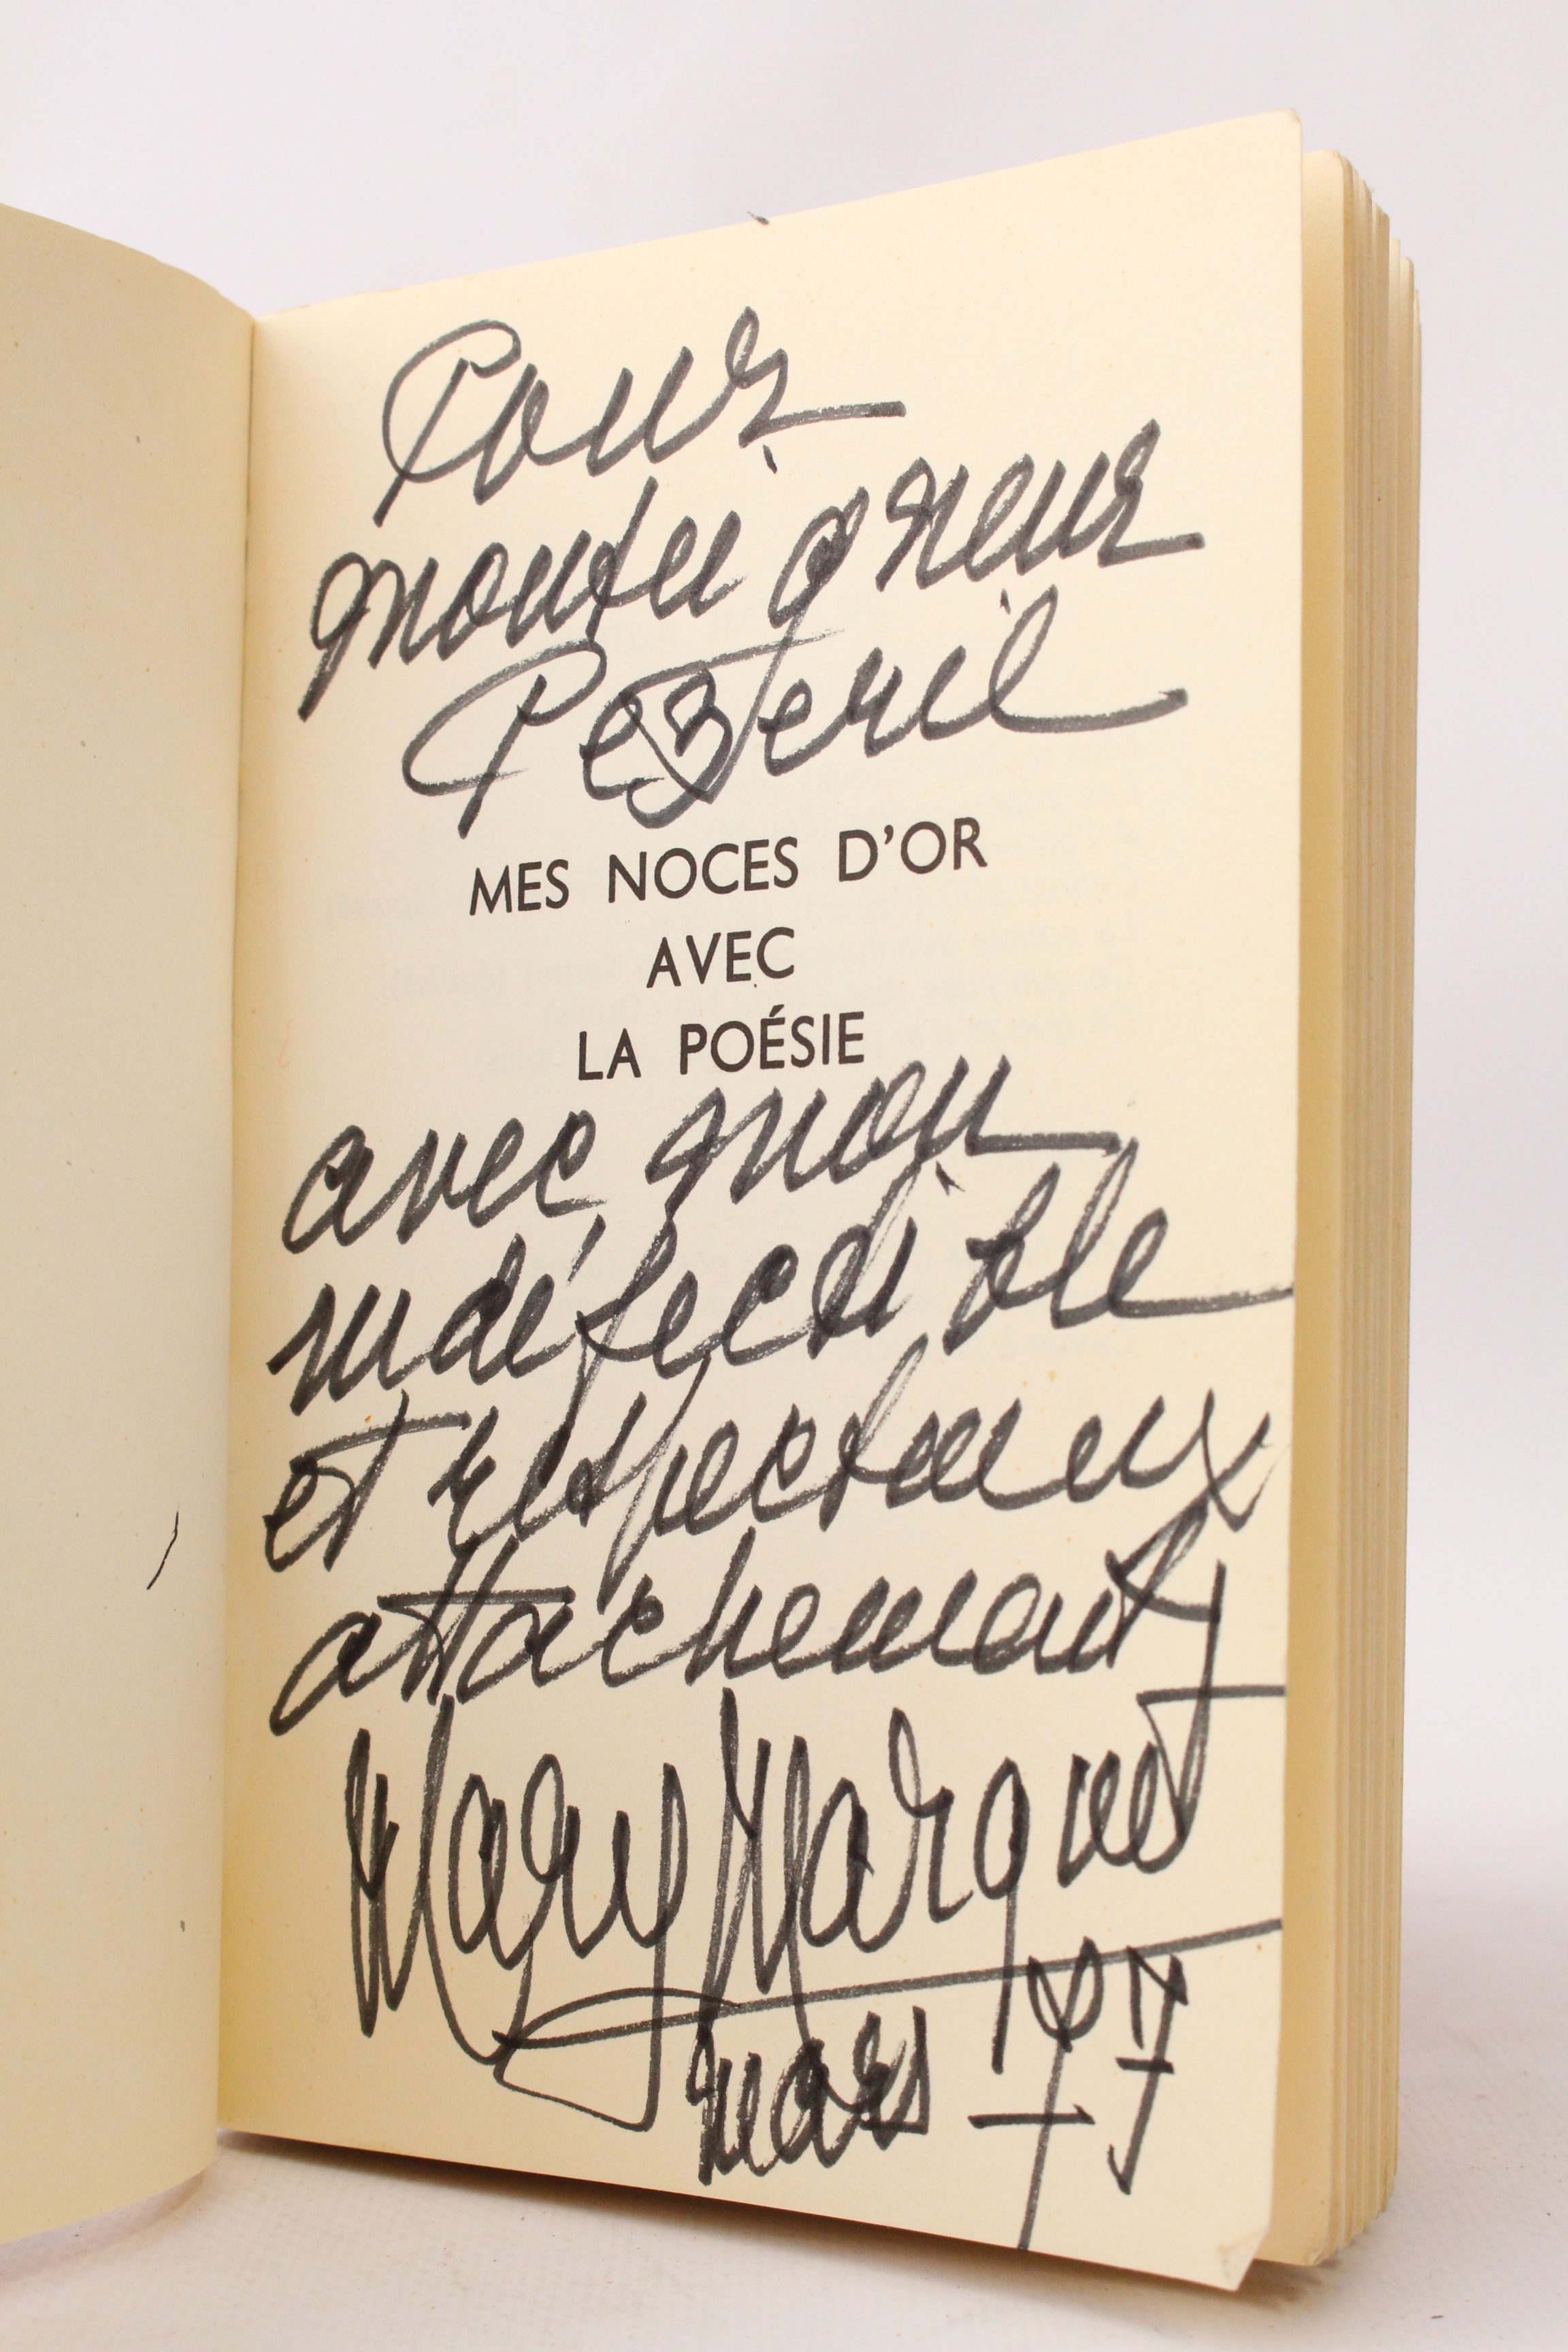 Pour
monseigneur
Pézeril
MES NOCES D'OR
AVEC
LA POÉSIE
avec mon
indéfectible
et respectueux
attachement
Mary Marquet
mars 77